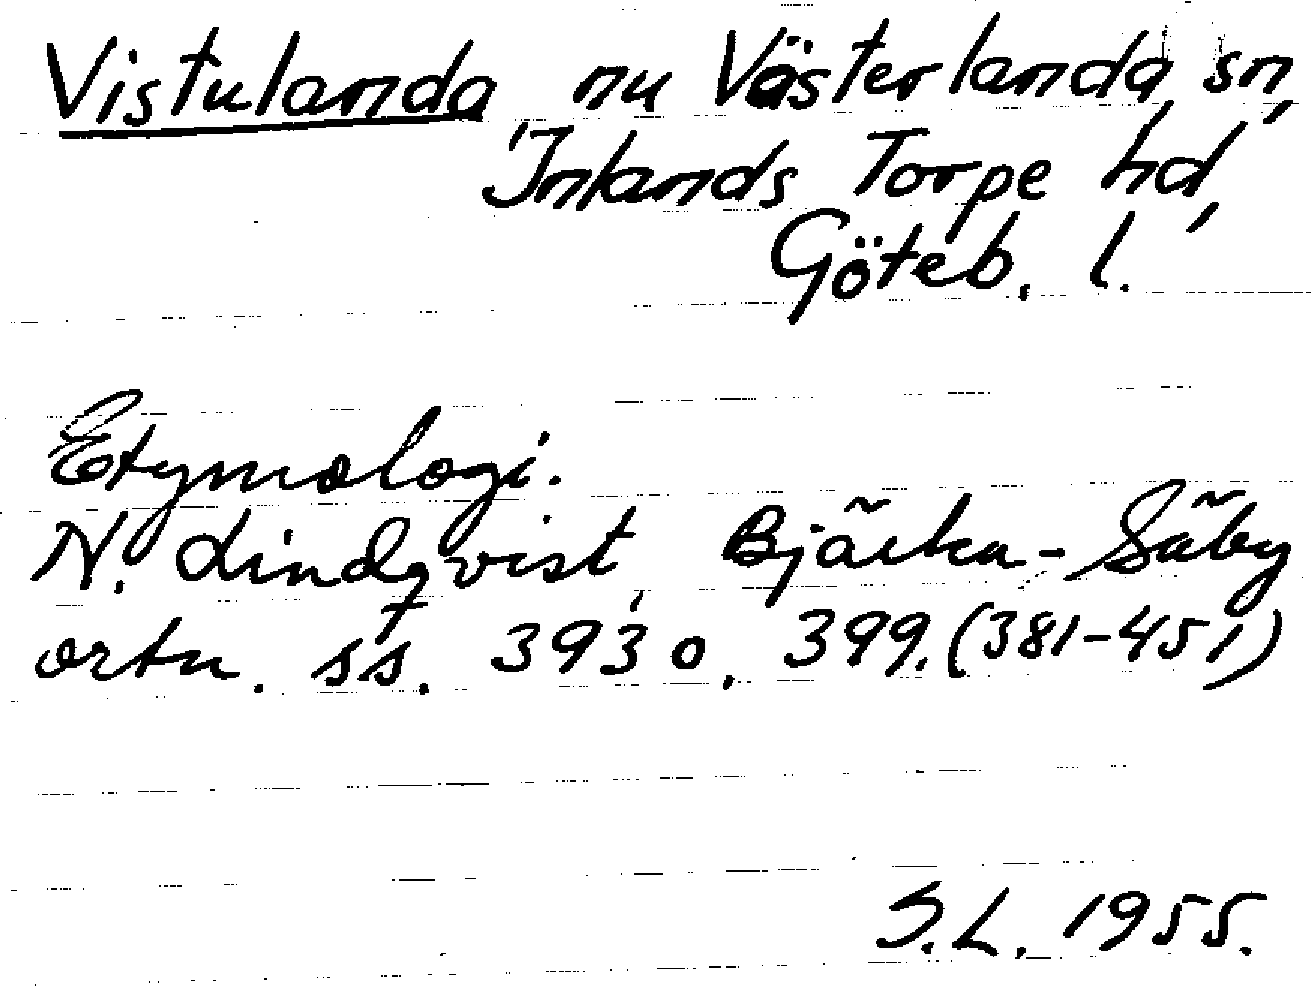 Vistulanda nu Västerlanda sn,
Inlands Torpe hd,
Göteb. l.
Etymologi.
N. Lindqvist, Bjärka-Säby
ortn. ss. 393 o. 399. (381-451)
S.L. 1955.